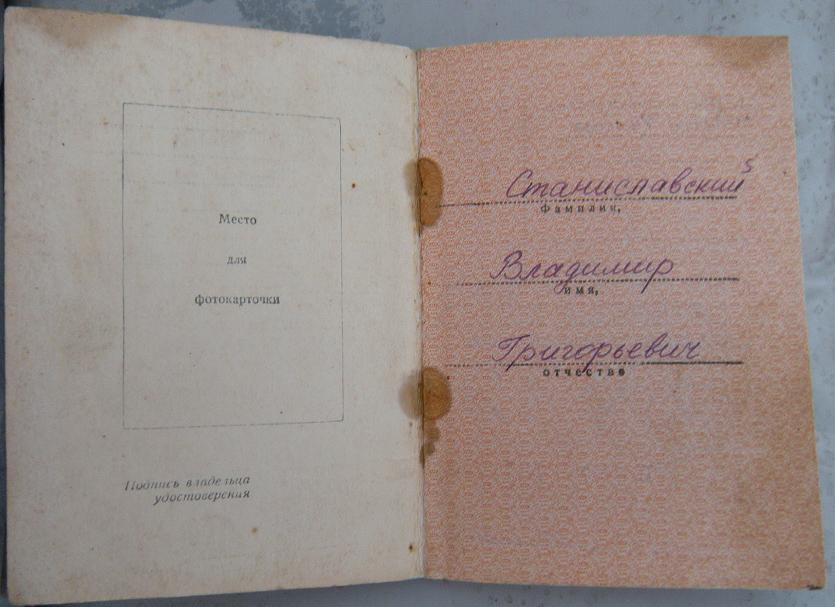 Место
для
фотокарточки
Подпись владельца
удостоверения
Станиславский
фамилия,
Владимир
имя,
Григорьевич
отчество